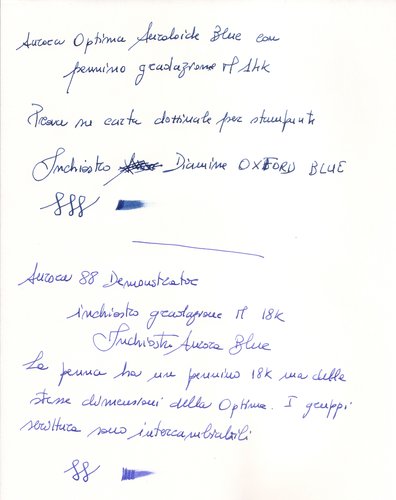 Aurora Optima Auroloide Blue con
pennino gradazione M 14k
Prova su carta dozzinale per stampanti
Inchiostro Diamine OXFORD BLUE
Aurora 88 Demonstrator
inchiostro gradazione M 18k
Inchiostro Aurora Blue
La penna ha un pennino 18k ma delle
stesse dimensioni della Optima. I gruppi
scrittura sono intercambiabili